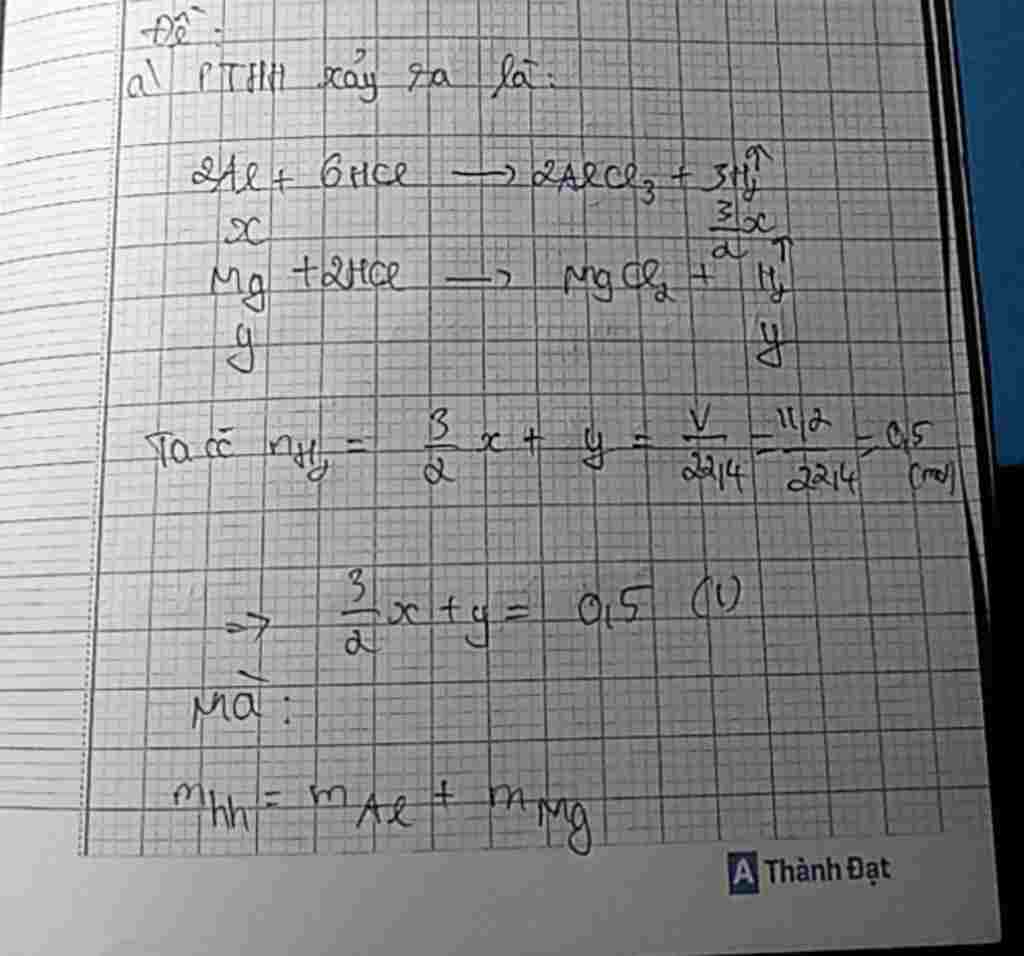 Đề:
a) PTHH xảy ra là:
2Al + 6HCl → 2AlCl₃ + 3H₂↑
x 3/2 x
Mg + 2HCl → MgCl₂ + H₂↑
y y
Ta có nH₂ = 3/2 x + y = V/22,4 = 11,2/22,4 = 0,5 (mol)
=> 3/2 x + y = 0,5 (1)
Mà:
mhh = mAl + mMg
A Thành Đạt